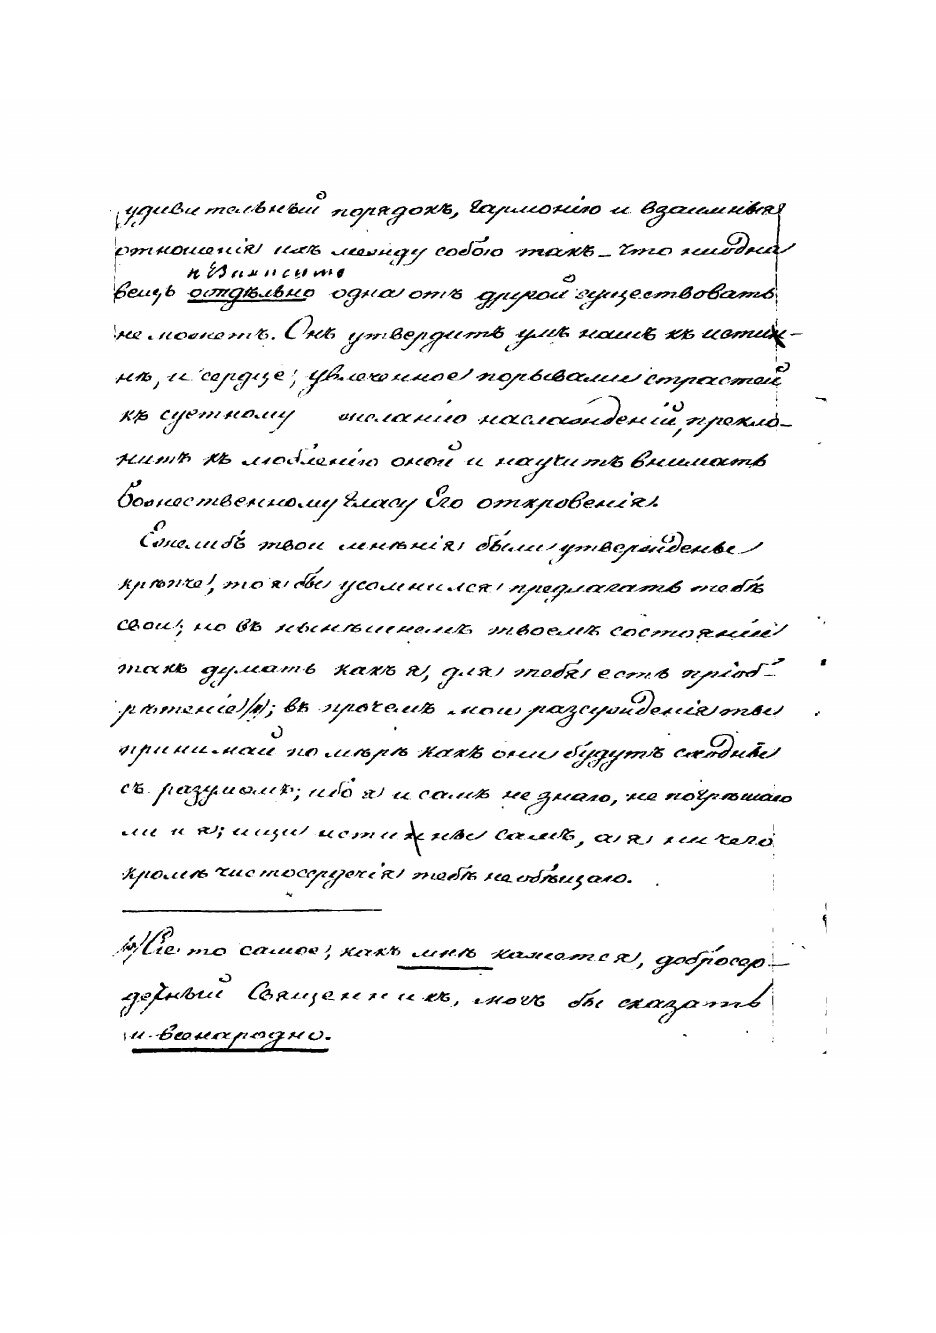 удивительный порядокъ, гармонію и взаимныя
отношенія ихъ между собою такъ – что ниодна
и Зависито
вещь отдѣльно одна отъ другой существовать
не можетъ. Онъ утвердитъ умъ нашъ къ исти-
нѣ, и сердце, увлеченное порывами страстей
къ суетному желанію наслажденій, прекло-
нитъ къ люблению оной и научитъ внимать
Божественному гласу Его откровенія.
Ежелибъ твои мнѣнія были утверждены
крѣпче, то я бы усомнился предлагать тебѣ
свои; но въ нынѣшнемъ твоемъ состояніи
такъ думать какъ я, для тебя есть пріоб-
рѣтеніе; въ прочемъ мои разсужденія ты
принимай по мѣрѣ какъ они будутъ сходны
съ разумомъ; ибо я и самъ не знаю, не погрѣшаю
ли и я; ищи истины самъ, а я ни чего
кромѣ чистосердечія тебѣ не обѣщаю.
Сіе то самое, какъ мнѣ кажется, добросер-
дечный Священникъ, могъ бы сказать
и всенародно.